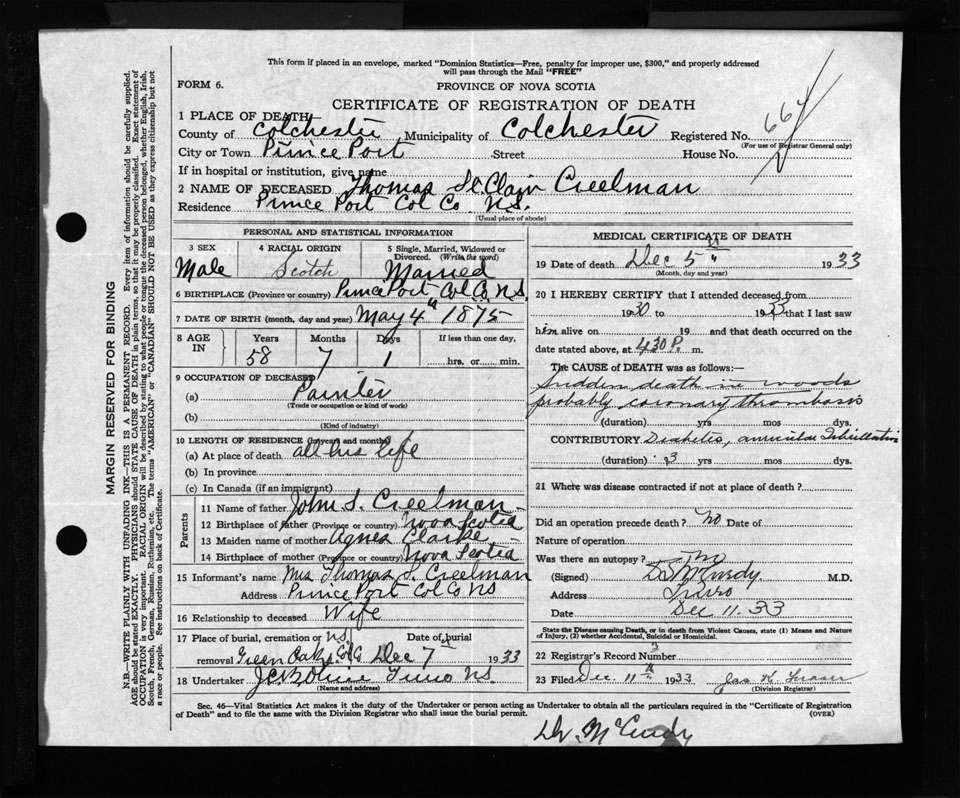 This form if placed in an envelope, marked "Dominion Statistics—Free, penalty for improper use, $300," and properly addressed
will pass through the Mail "FREE"
FORM 6.
PROVINCE OF NOVA SCOTIA
CERTIFICATE OF REGISTRATION OF DEATH
1 PLACE OF DEATH
County of Colchester, Municipality of Colchester Registered No. 664
(For use of Registrar General only)
City or Town Prince Port Street House No.
If in hospital or institution, give name
2 NAME OF DECEASED Thomas St. Clair Creelman
Residence Prince Port Col Co. N.S.
(Usual place of abode)
PERSONAL AND STATISTICAL INFORMATION
3 SEX 4 RACIAL ORIGIN 5 Single, Married, Widowed or
Divorced. (Write the word)
Male Scotch Married
6 BIRTHPLACE (Province or country) Prince Port Col. Co. N.S.
7 DATE OF BIRTH (month, day and year) May 4th 1875
8 AGE IN Years Months Days If less than one day,
58 7 1 hrs. or min.
9 OCCUPATION OF DECEASED
(a) Painter
(Trade or occupation or kind of work)
(b)
(Kind of industry)
10 LENGTH OF RESIDENCE (In years and months)
(a) At place of death all his life
(b) In province
(c) In Canada (if an immigrant)
Parents
11 Name of father John S. Creelman
12 Birthplace of father (Province or country) Nova Scotia
13 Maiden name of mother Agnes Clarke
14 Birthplace of mother (Province or country) Nova Scotia
15 Informant's name Mrs Thomas S. Creelman
Address Prince Port Col Co NS
16 Relationship to deceased Wife
17 Place of burial, cremation or N.S. Date of burial
removal Green Oaks Col Co Dec 7th 1933
18 Undertaker Truro NS.
(Name and address)
MEDICAL CERTIFICATE OF DEATH
19 Date of death Dec 5th 1933
(Month, day and year)
20 I HEREBY CERTIFY that I attended deceased from
1930 to 1933 that I last saw
him alive on 19 and that death occurred on the
date stated above, at 4.30 P. m.
The CAUSE of DEATH was as follows:
Sudden death in woods
probably coronary thrombosis
(duration) yrs mos dys.
CONTRIBUTORY Diabetes, auricular fibrillation
(duration) 3 yrs mos dys.
21 Where was disease contracted if not at place of death?
Did an operation precede death? No Date of
Nature of operation
Was there an autopsy? No
(Signed) Dr McCurdy. M.D.
Address Truro
Date Dec 11. 33
State the Disease causing Death, or in death from Violent Causes, state (1) Means and Nature
of Injury, (2) whether Accidental, Suicidal or Homicidal.
22 Registrar's Record Number 3
23 Filed Dec. 11th 1933 Jas. K. Fraser
(Division Registrar)
Sec. 46—Vital Statistics Act makes it the duty of the Undertaker or person acting as Undertaker to obtain all the particulars required in the "Certificate of Registration
of Death" and to file the same with the Division Registrar who shall issue the burial permit. (OVER)
Dr. McCurdy
MARGIN RESERVED FOR BINDING
N.B.—WRITE PLAINLY WITH UNFADING INK—THIS IS A PERMANENT RECORD. Every item of information should be carefully supplied.
AGE should be stated EXACTLY. PHYSICIANS should STATE CAUSE OF DEATH in plain terms, so that it may be properly classified. Exact statement of
OCCUPATION is very important. RACIAL ORIGIN will be described by stating to what people or tongue the deceased person belonged, whether English, Irish,
Scotch, French, German, Russian, Ruthenian, etc. The terms "AMERICAN" or "CANADIAN" SHOULD NOT BE USED as they express citizenship but not
a race or people. See instructions on back of Certificate.